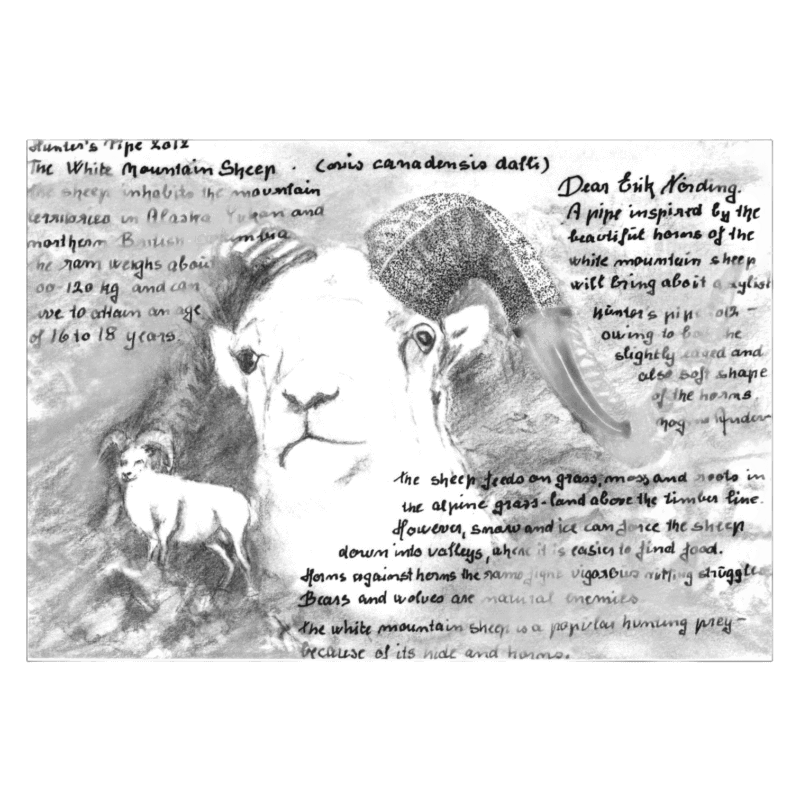 Hunter's Pipe 2012
The White Mountain Sheep. (ovis canadensis dalli)
the sheep inhabits the mountain
in Alaska Yucan and
northern British
he ram weighs about
00-120 kg and can
ve to attain an age
of 16 to 18 years.
Dear Erik Nørding.
A pipe inspired by the
beautiful horns of the
white mountain sheep
will bring about a stylist
Hunter's pipe 2012 -
owing to he
slightly and
also soft shape
of the horns.
the sheep feeds on grass, moss and roots in
the alpine grass-land above the timber line.
However, snow and ice can force the sheep
down into valleys, where it is easier to find food.
Horns against horns the rams fight vigorous rutting struggles
Bears and wolves are natural enemies
the white mountain sheep is a popular hunting prey -
because of its hide and horns.